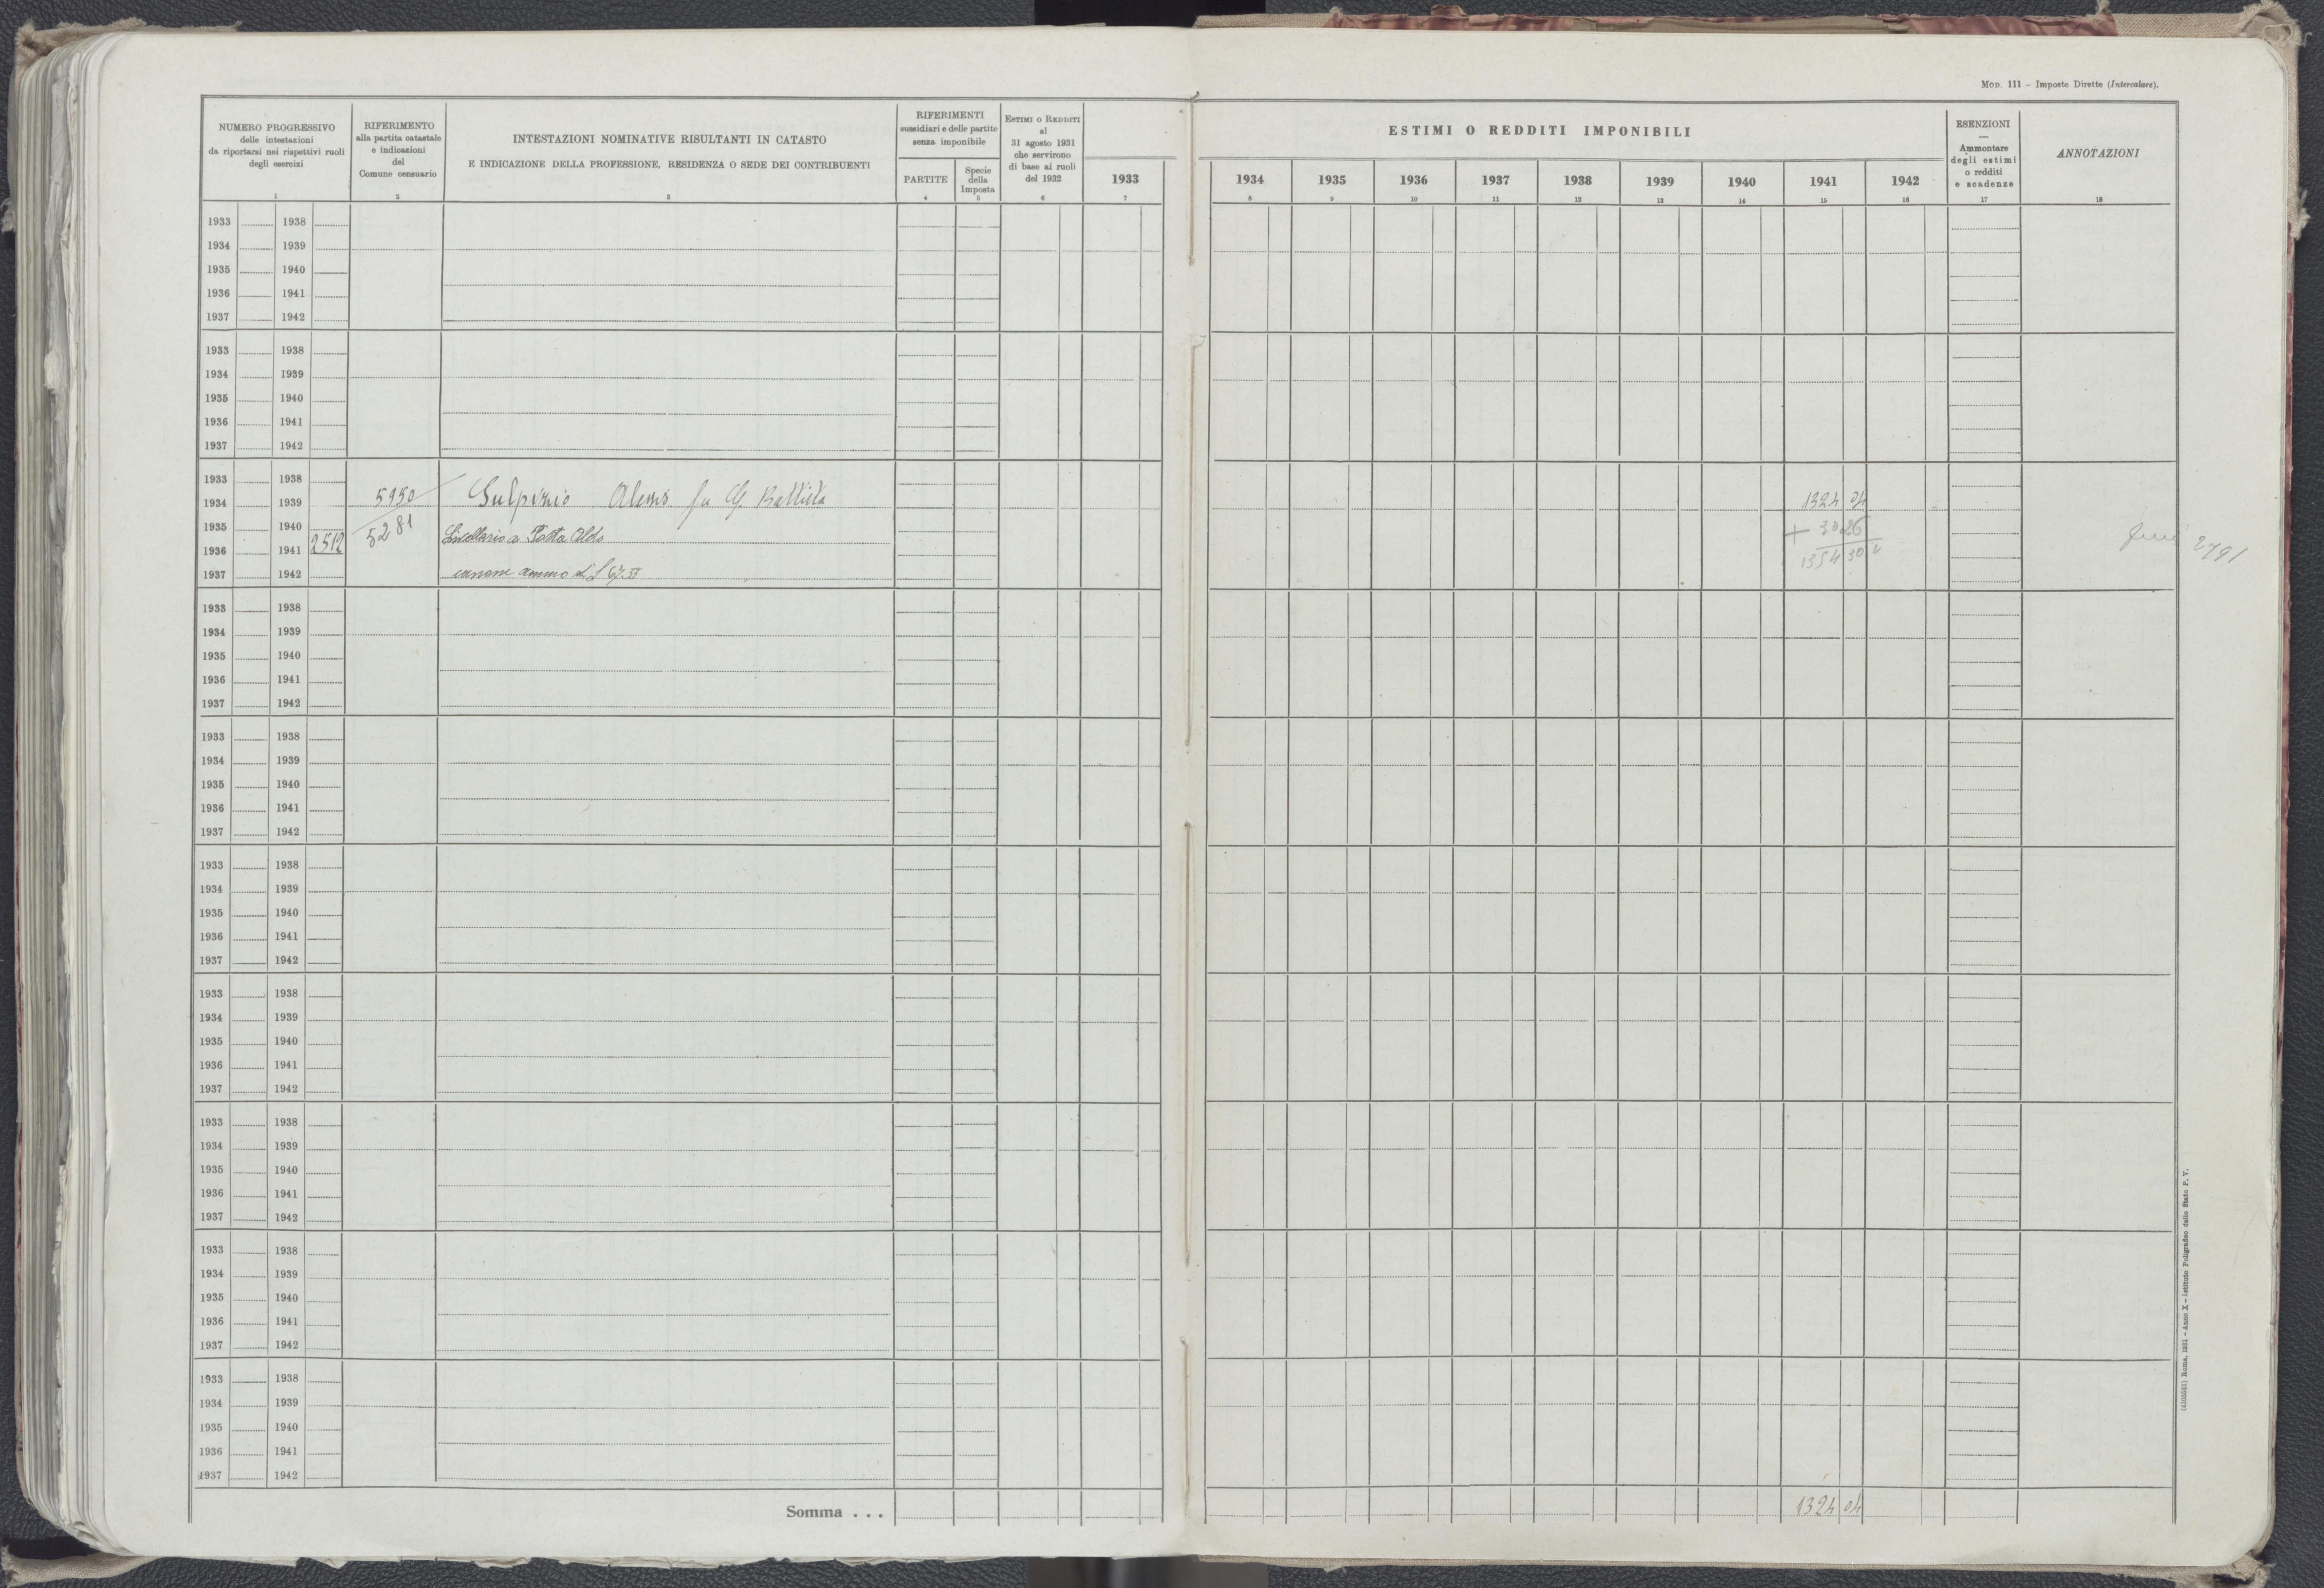 MOD. 111 – Imposte Dirette (Intercalare).
NUMERO PROGRESSIVO
delle intestazioni
da riportarsi nei rispettivi ruoli
degli esercizi
1
RIFERIMENTO
alla partita catastale
e indicazioni
del
Comune censuario
2
INTESTAZIONI NOMINATIVE RISULTANTI IN CATASTO
E INDICAZIONE DELLA PROFESSIONE, RESIDENZA O SEDE DEI CONTRIBUENTI
3
RIFERIMENTI
sussidiari e delle partite
senza imponibile
PARTITE
4
Specie
della
Imposta
5
ESTIMI O REDDITI
al
31 agosto 1931
che servirono
di base ai ruoli
del 1932
6
ESTIMI O REDDITI IMPONIBILI
1933 1934 1935 1936 1937 1938 1939 1940 1941 1942
7 8 9 10 11 12 13 14 15 16
ESENZIONI
—
Ammontare
degli estimi
o redditi
e scadenze
17
ANNOTAZIONI
18
1933 1938
1934 1939
1935 1940
1936 1941
1937 1942
1933 1938
1934 1939
1935 1940
1936 1941
1937 1942
1933 1938
1934 1939 5950 Sulpizio fu G. Battista 1324 04
1935 1940 5281 Livellario a Potta Aldo + 30 26
1936 1941 2512 1354 30 2791
1937 1942 canone annuo di £ 67.55
1933 1938
1934 1939
1935 1940
1936 1941
1937 1942
1933 1938
1934 1939
1935 1940
1936 1941
1937 1942
1933 1938
1934 1939
1935 1940
1936 1941
1937 1942
1933 1938
1934 1939
1935 1940
1936 1941
1937 1942
1933 1938
1934 1939
1935 1940
1936 1941
1937 1942
1933 1938
1934 1939
1935 1940
1936 1941
1937 1942
1933 1938
1934 1939
1935 1940
1936 1941
1937 1942
Somma . . . 1324 04
(4100531) Roma, 1931 – Anno X – Istituto Poligrafico dello Stato P. V.